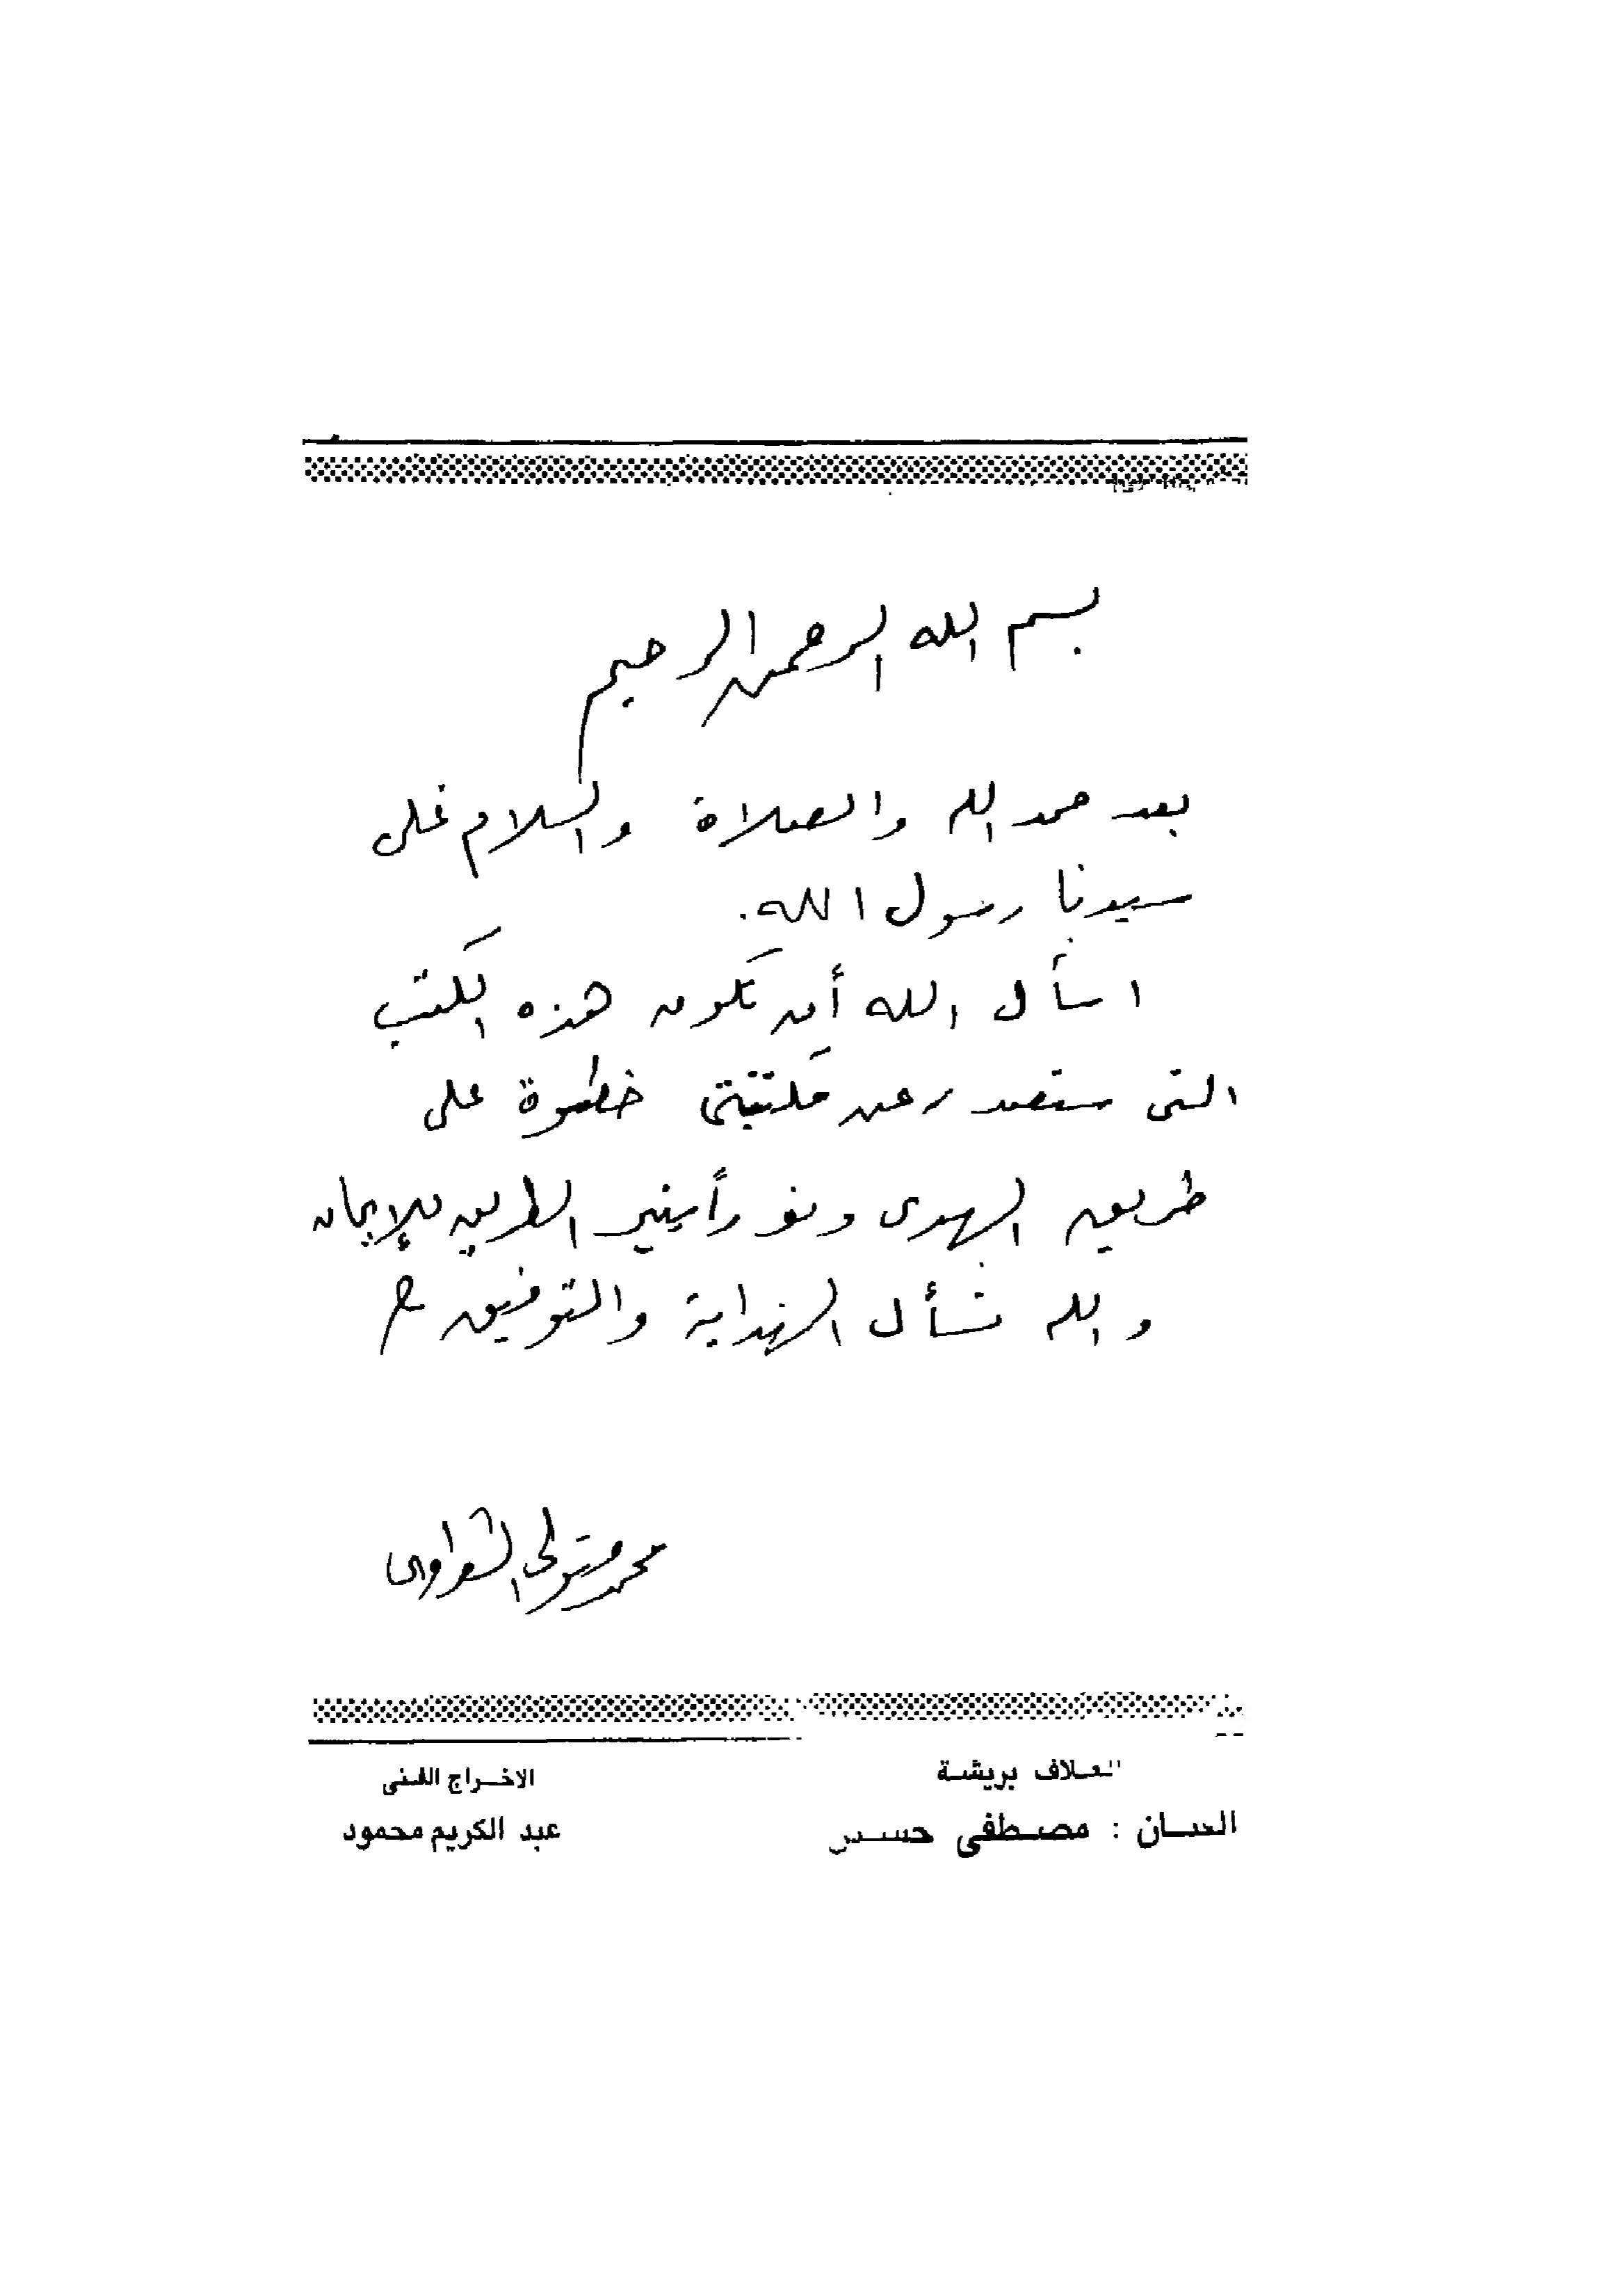 بسم الله الرحمن الرحيم
بعد حمد الله والصلاة والسلام على
سيدنا رسول الله.
اسأل الله أن تكون هذه الكتب
التى ستصدر عن مكتبتى خطوة على
طريق الهدى ونوراً ينير الطريق للإيمان
والله نسأل الهداية والتوفيق
محمد متولى الشعراوى
الغلاف بريشة
الفنان : مصطفى حسين
الاخراج الفنى
عبد الكريم محمود